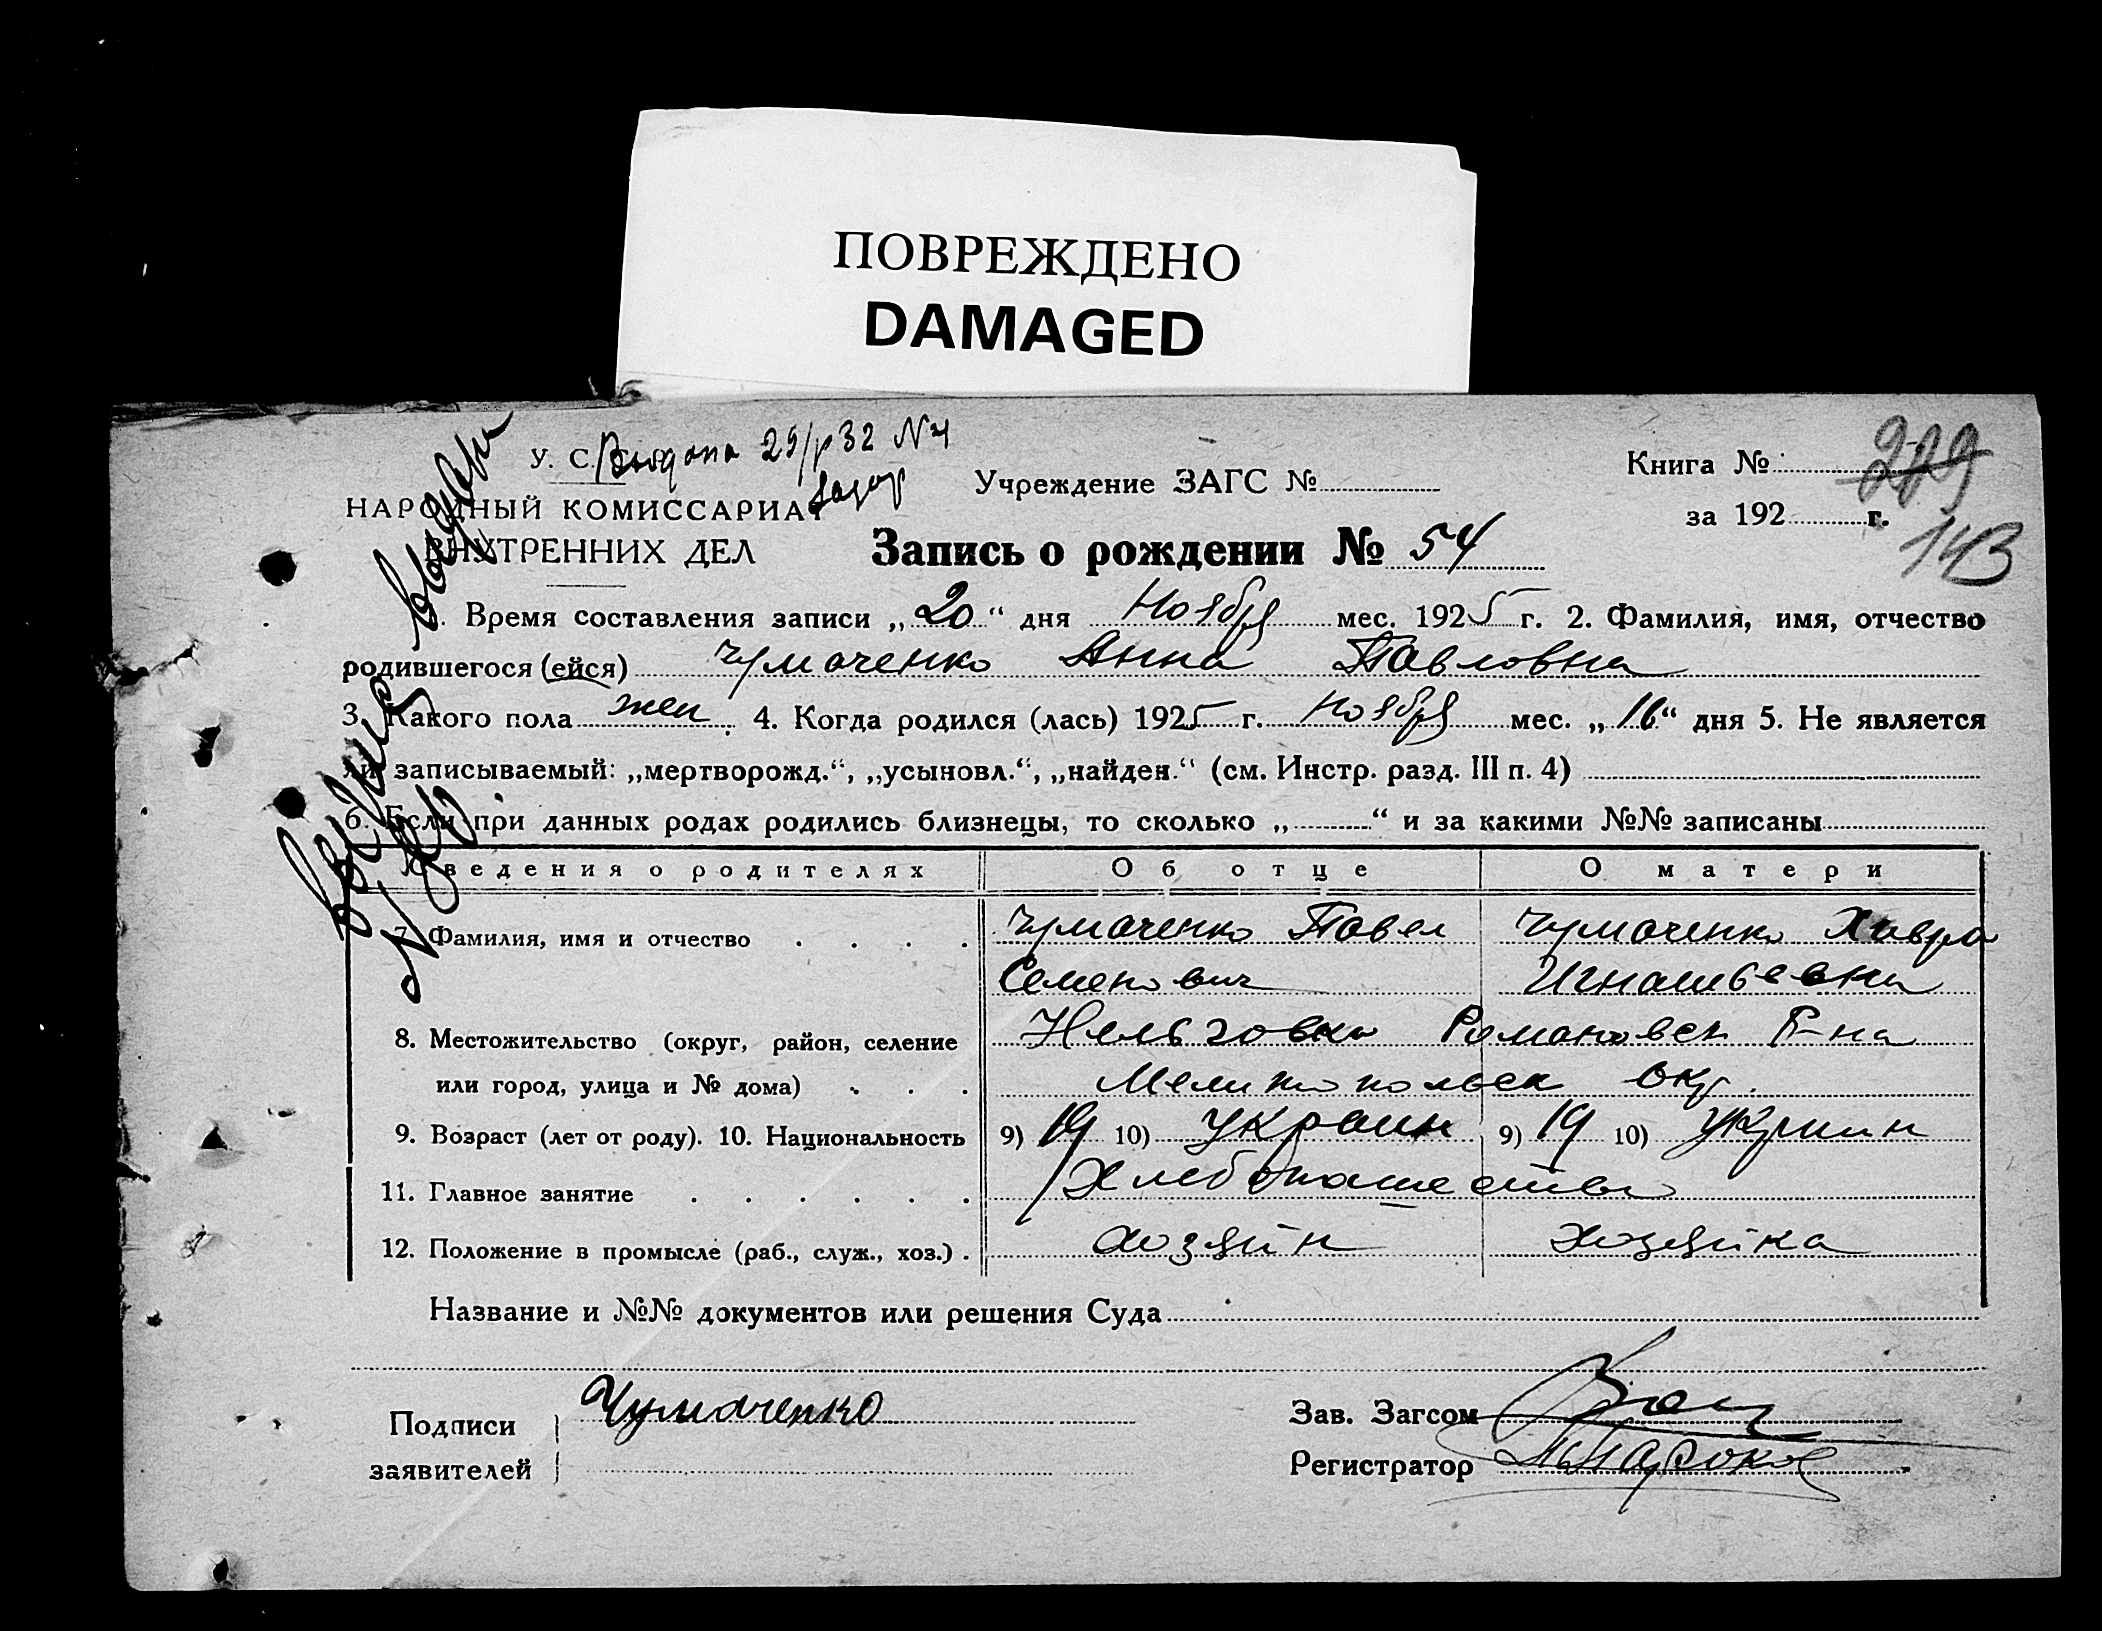 ПОВРЕЖДЕНО
DAMAGED
У. С. Выдана 29/р 32 №4
Учреждение ЗАГС №
Книга № 229
НАРОДНЫЙ КОМИССАРИАТ
за 192 г.
143
ВНУТРЕННИХ ДЕЛ
Запись о рождении № 54
1. Время составления записи „20“ дня Ноября мес. 1925 г. 2. Фамилия, имя, отчество
родившегося (ейся) Чумаченко Анна Павловна
3. Какого пола жен 4. Когда родился (лась) 1925 г. Ноября мес. „16“ дня 5. Не является
ли записываемый: „мертворожд.“, „усыновл.“, „найден.“ (см. Инстр. разд. III п. 4)
6. Если при данных родах родились близнецы, то сколько „ “ и за какими №№ записаны
Сведения о родителях Об отце О матери
7. Фамилия, имя и отчество Чумаченко Павел Чумаченко Хавра
Семенович Игнатьевна
8. Местожительство (округ, район, селение Нельговка Романовск Р-на
или город, улица и № дома) Мелитопольск окр.
9. Возраст (лет от роду). 10. Национальность 9) 19 10) Украин 9) 19 10) Украин
11. Главное занятие Хлебопашество
12. Положение в промысле (раб., служ., хоз.) хозяин хозяйка
Название и №№ документов или решения Суда
Подписи Чумаченко Зав. Загсом
заявителей Регистратор